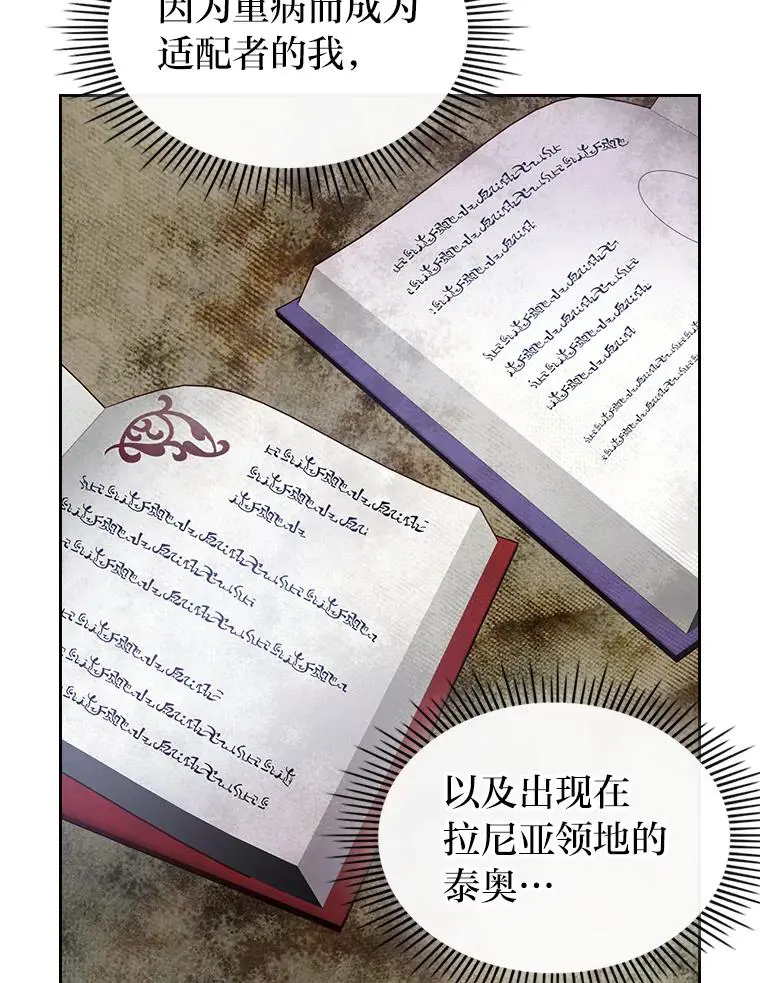 因为重病而成为
适配者的我，
以及出现在
拉尼亚领地的
泰奥…